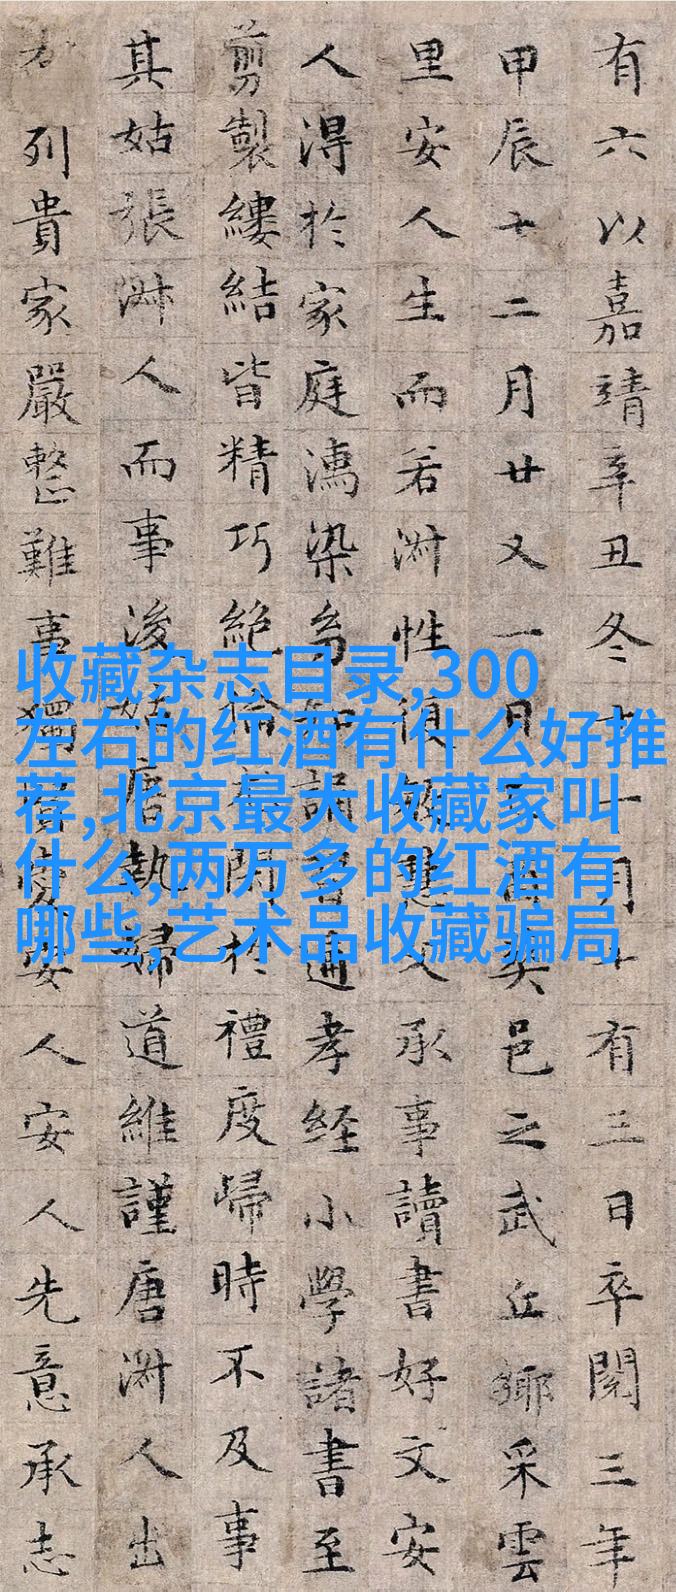 有六以嘉靖辛丑冬十一月十有三日卒閱三年
甲辰十二月廿又一日矣邑之武丘鄉采雲
里安人生而若淑性復慧父承事讀書好文安
人淂於家庭濡染誦習通孝經小學諸書至
剪製縷結皆精巧絕倫閑於禮度歸時不及事
其姑張淑人而事後姑唐執婦道維謹唐淑人出
列貴家嚴整難事獨愛安人安人先意承志
收藏杂志目录,300
左右的红酒有什么好推
荐,北京最大收藏家叫
什么,两万多的红酒有
哪些,艺术品收藏骗局